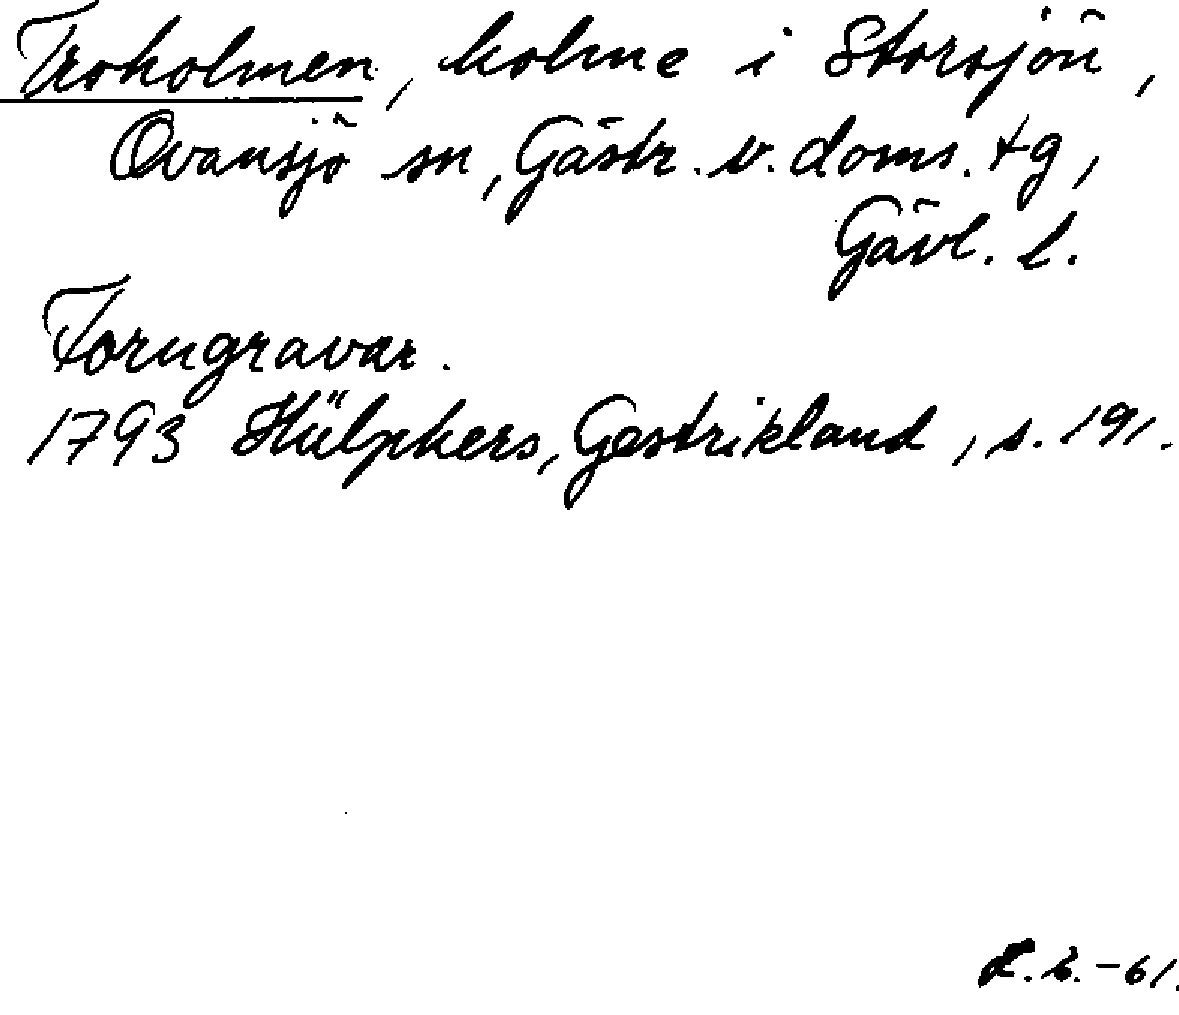 Troholmen, holme i Storsjön,
Ovansjö sn, Gästr. v. doms. tg,
Gävl. l.
Forngravar.
1793 Hülphers, Gestrikland, s. 191.
-61.